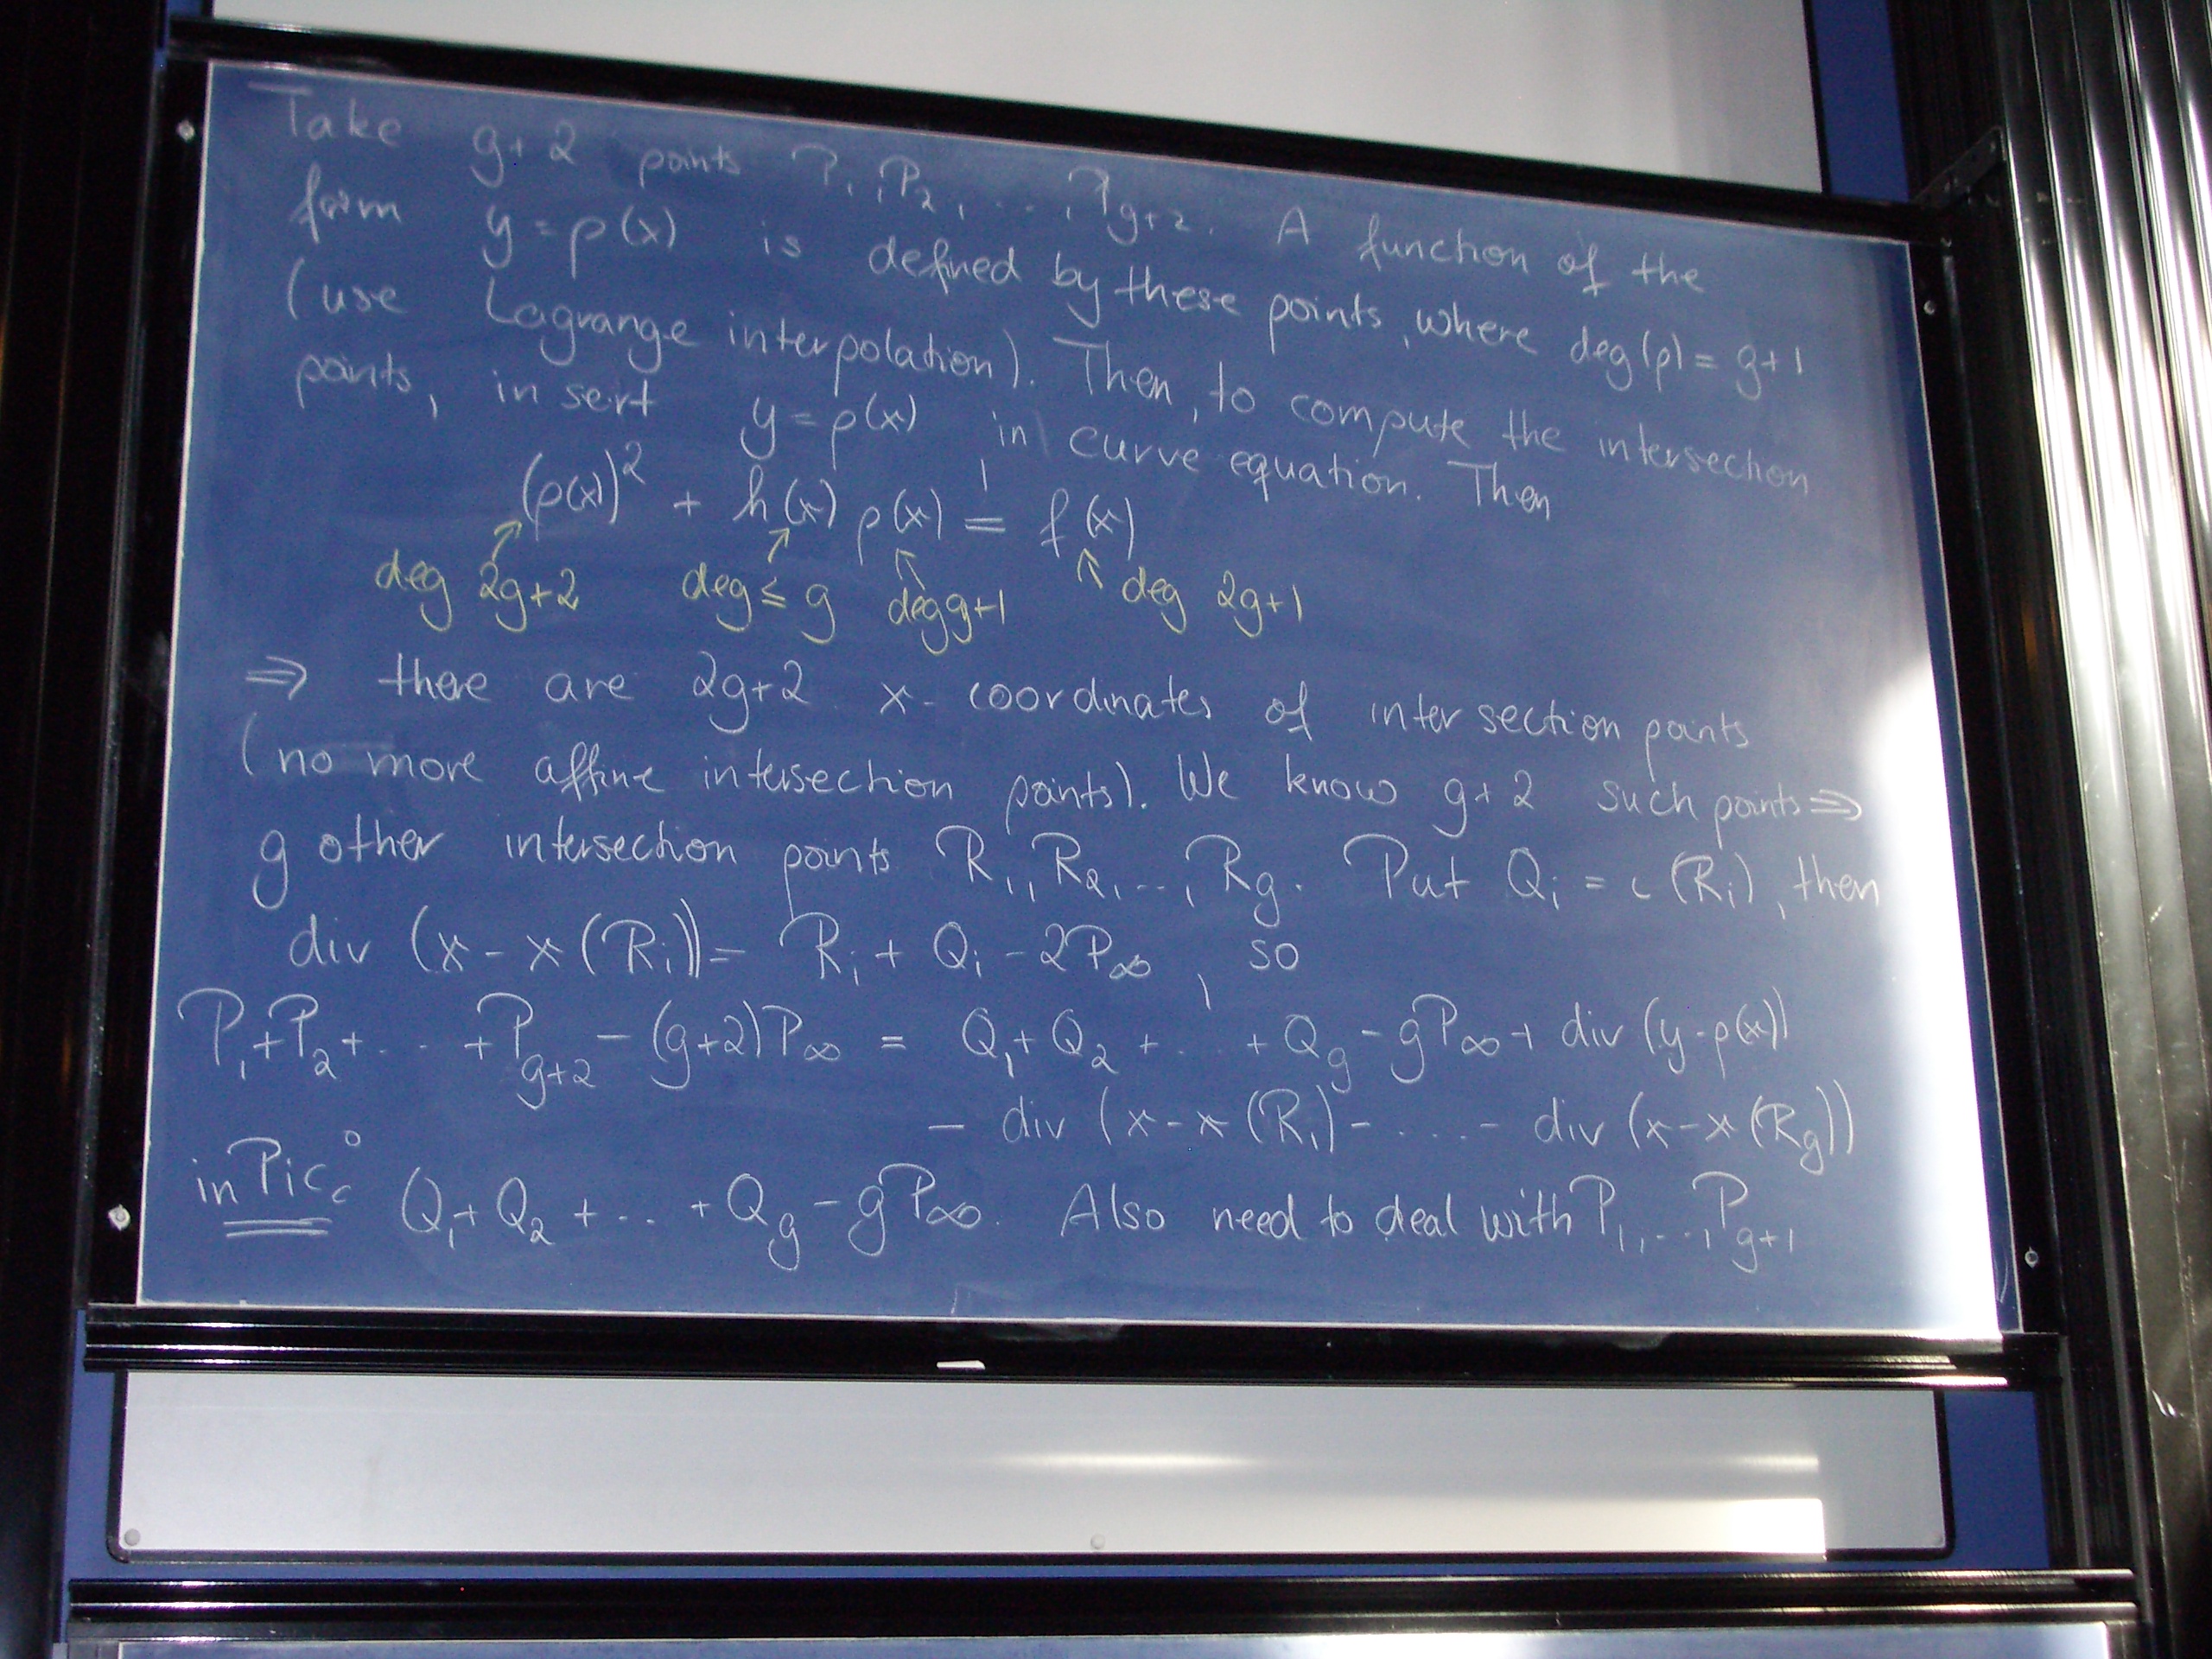 Take g+2 points P₁, P₂, ..., P_{g+2}. A function of the
form y = p(x) is defined by these points, where deg(p) = g+1
(use Lagrange interpolation). Then, to compute the intersection
points, insert y = p(x) in curve equation. Then
(p(x))² + h(x) p(x) = f(x)
deg 2g+2 deg ≤ g deg g+1 deg 2g+1
⇒ there are 2g+2 x-coordinates of intersection points
(no more affine intersection points). We know g+2 such points ⇒
g other intersection points R₁, R₂, ..., R_g. Put Q_i = ι(R_i), then
div (x - x(R_i)) = R_i + Q_i - 2P_∞, so
P₁+P₂+ ... +P_{g+2} - (g+2)P_∞ = Q₁+Q₂ + ... + Q_g - gP_∞ + div (y-p(x))
- div (x-x(R₁) - .... - div (x-x(R_g))
in Pic⁰_C Q₁+Q₂ + ... + Q_g - gP_∞. Also need to deal with P₁, ..., P_{g+1}